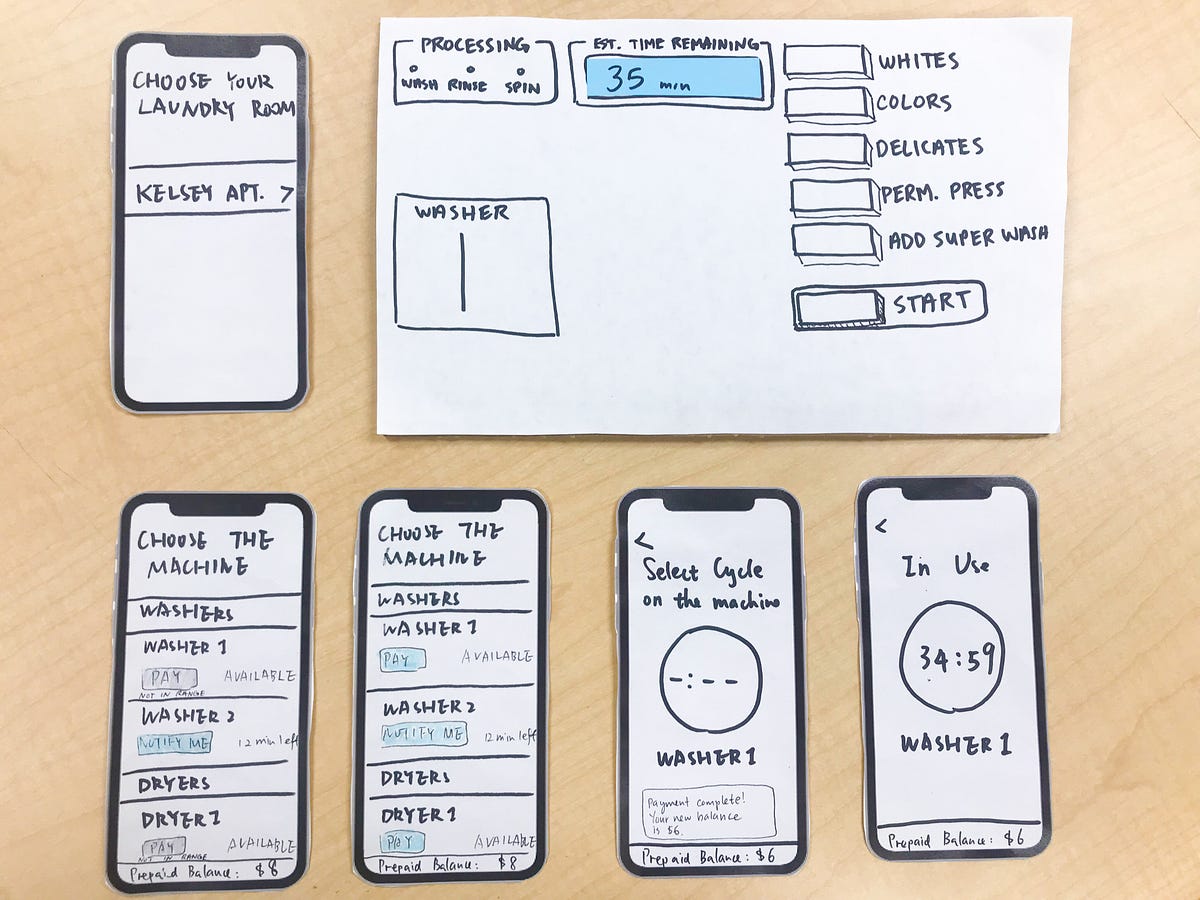 CHOOSE YOUR
LAUNDRY ROOM
KELSEY APT. >
PROCESSING
WASH RINSE SPIN
EST. TIME REMAINING
35 min
WASHER
WHITES
COLORS
DELICATES
PERM. PRESS
ADD SUPER WASH
START
CHOOSE THE
MACHINE
WASHERS
WASHER 1
PAY AVAILABLE
NOT IN RANGE
WASHER 2
NOTIFY ME 12 min left
DRYERS
DRYER 1
PAY AVAILABLE
NOT IN RANGE
Prepaid Balance: $8
CHOOSE THE
MACHINE
WASHERS
WASHER 1
PAY AVAILABLE
WASHER 2
NOTIFY ME 12 min left
DRYERS
DRYER 1
PAY AVAILABLE
Prepaid Balance: $8
<
Select Cycle
on the machine
-:--
WASHER 1
Payment complete!
Your new balance
is $6.
Prepaid Balance: $6
<
In Use
34:59
WASHER 1
Prepaid Balance: $6